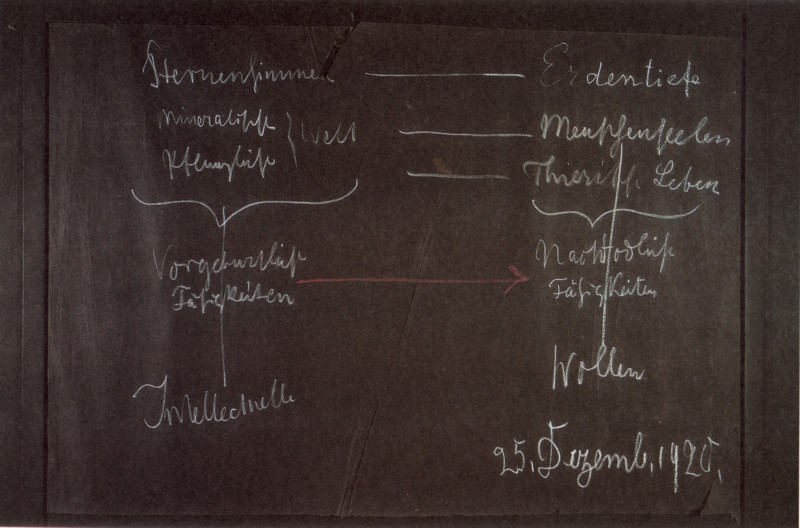 Sternenhimmel Erdentiefe
Mineralisch Menschenseelen
Welt
Pflanzlich Thierisch Leben
Vorgeburtlich Nachtodlich
Fähigkeiten Fähigkeiten
Intellectuelle Wollen
25. Dezemb. 1920.